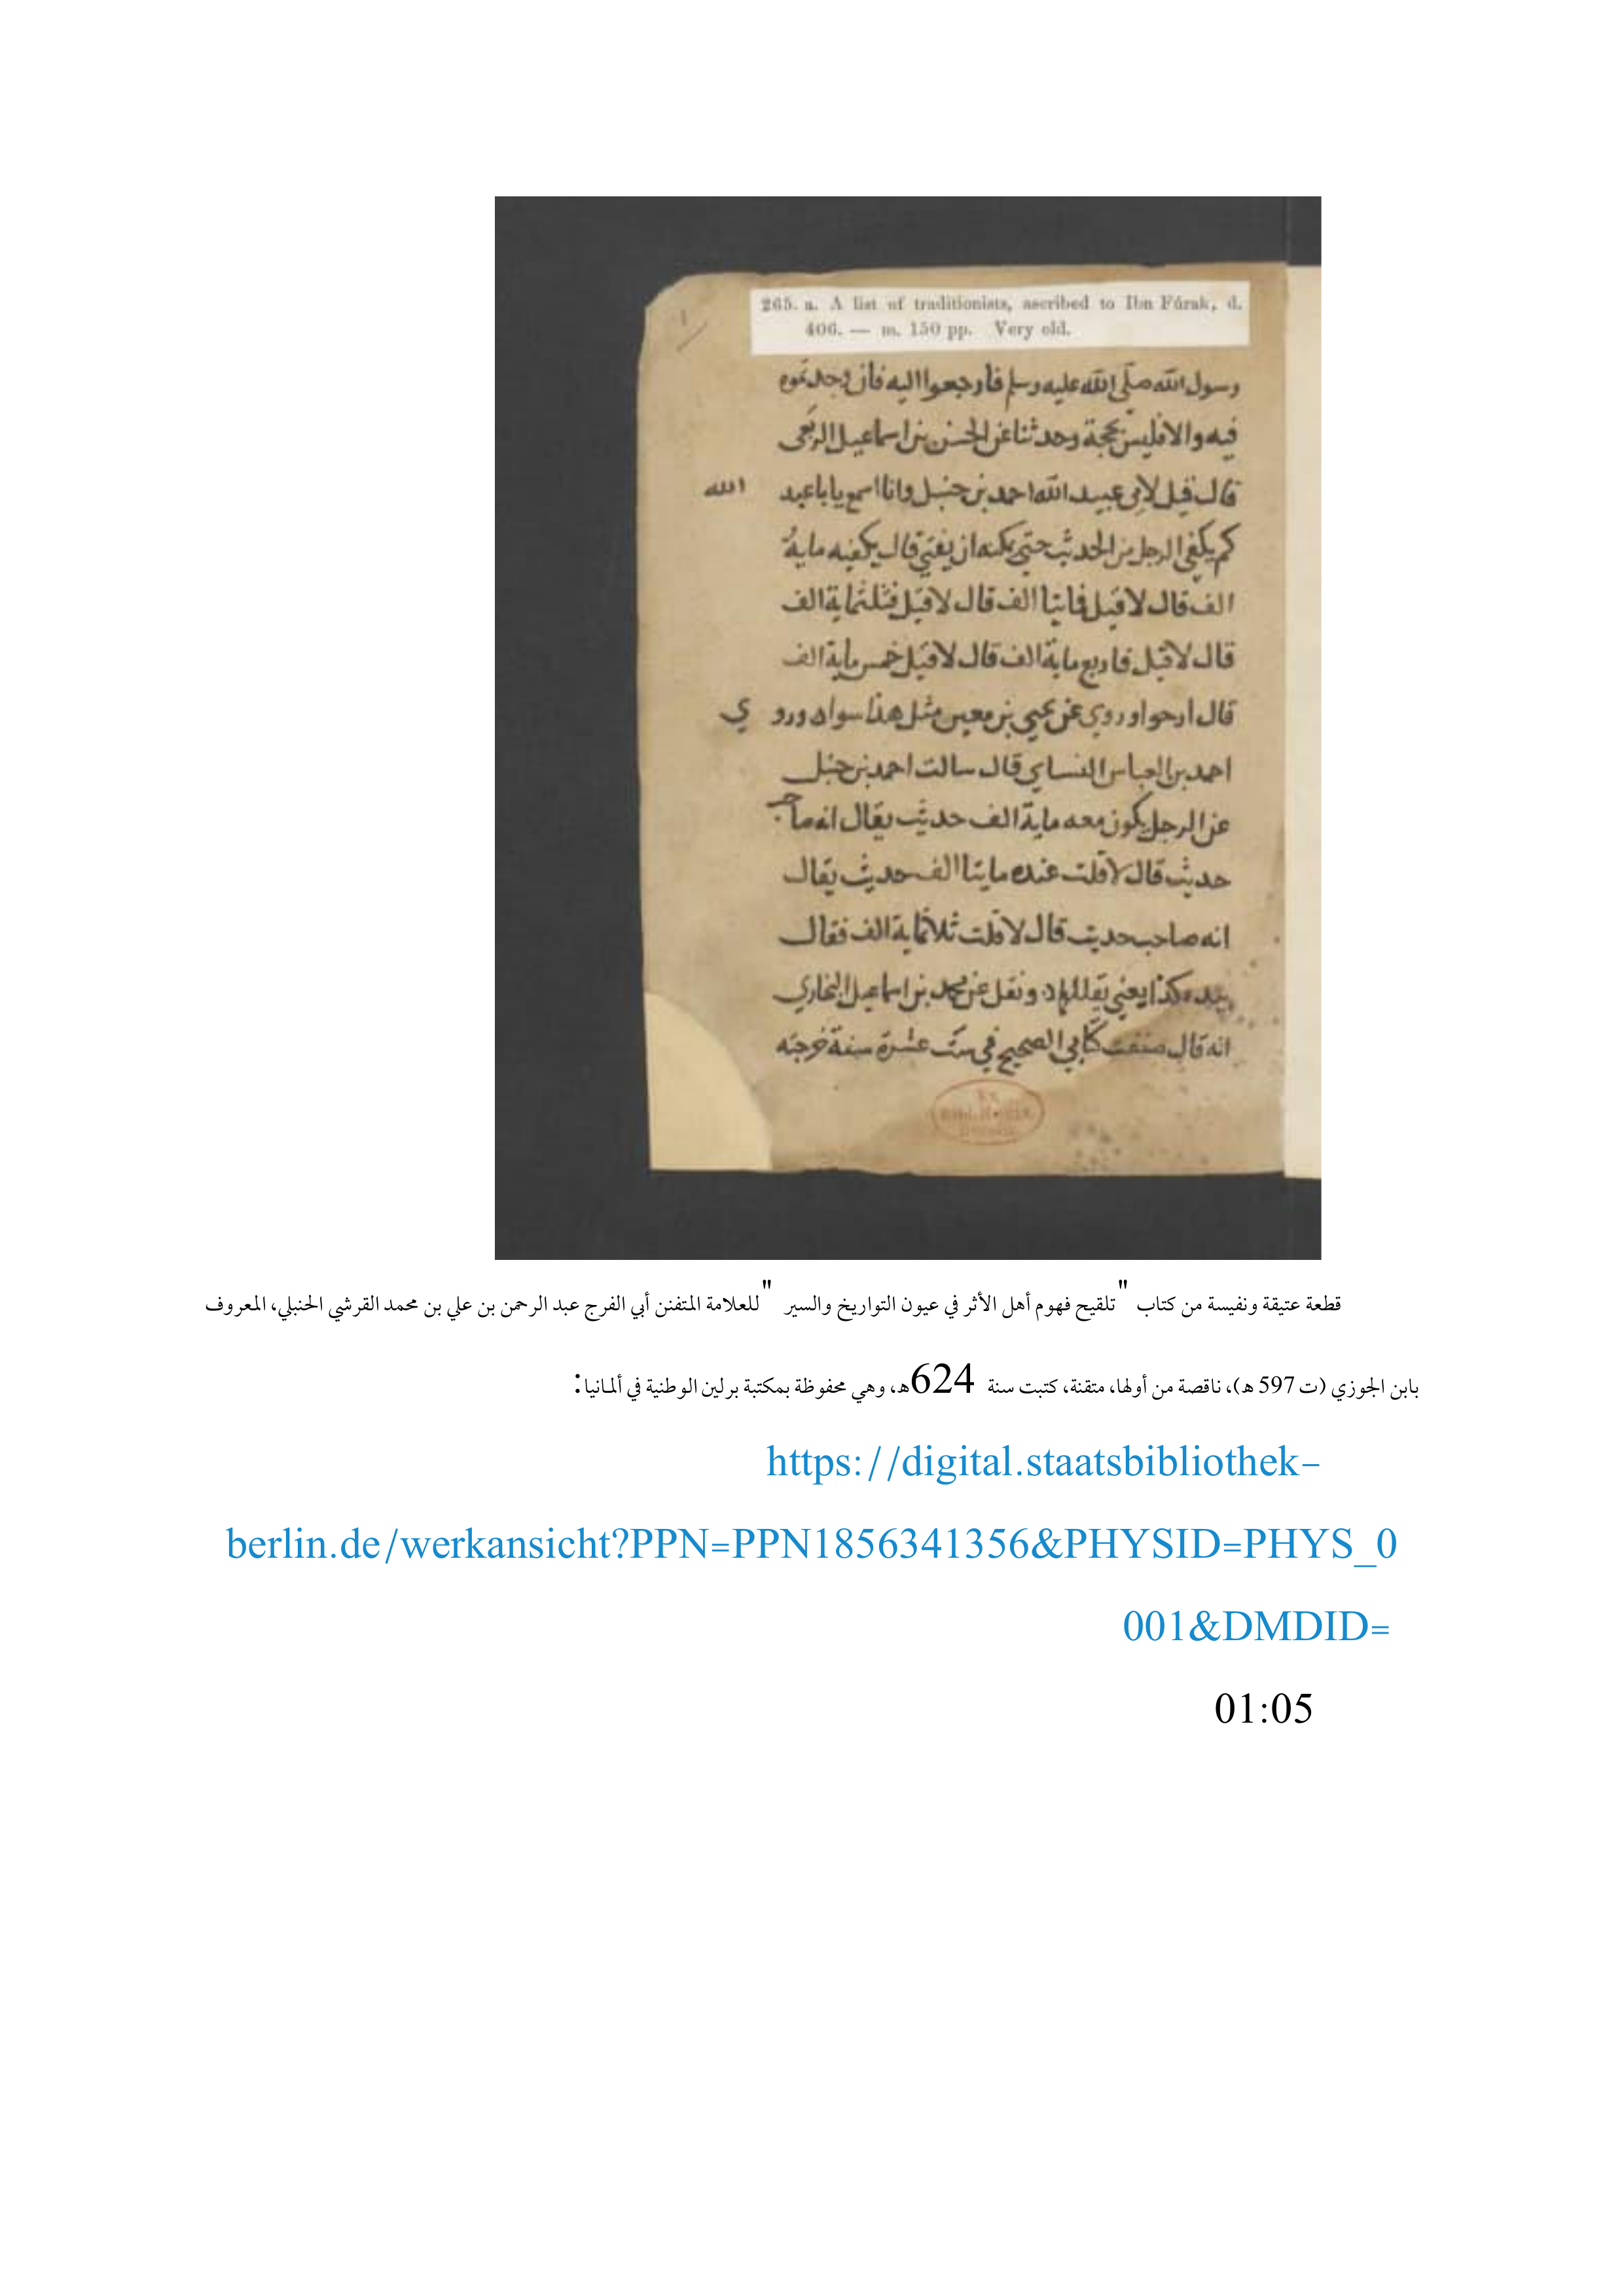 265. a. A list of traditionists, ascribed to Ibn Fúrak, d.
406. — m. 150 pp. Very old.
رسول الله صلى الله عليه وسلم فارجعوا اليه فان
فيه والا فليس بحجة وحدثنا عن الحسن بن اسماعيل الربعى
قال قيل لابي عبد الله احمد بن حنبل وانا اسمع يا با عبد الله
كم يكفي الرجل من الحديث حتى يمكنه ان يفتي قال يكفيه ماية
الف قال لا قيل فمايتا الف قال لا قيل فثلثماية الف
قال لا قيل فاربع ماية الف قال لا قيل خمس ماية الف
قال ارجوا وروي عن يحيى بن معين مثل هذا سواء وروي
احمد بن العباس النساي قال سالت احمد بن حنبل
عن الرجل يكون معه ماية الف حديث يقال انه صاحب
حديث قال لا قلت عنده مايتا الف حديث يقال
انه صاحب حديث قال لا قلت ثلاثماية الف فقال
بيده كذا يعني يقللها ونقل عن محمد بن اسماعيل البخاري
انه قال صنفت كتابي الصحيح في ست عشرة سنة خرجته
قطعة عتيقة ونفيسة من كتاب "تلقيح فهوم أهل الأثر في عيون التواريخ والسير" للعلامة المتفنن أبي الفرج عبد الرحمن بن علي بن محمد القرشي الحنبلي، المعروف
بابن الجوزي (ت 597 هـ)، ناقصة من أولها، متقنة، كتبت سنة 624هـ، وهي محفوظة بمكتبة برلين الوطنية في ألمانيا:
https://digital.staatsbibliothek-
berlin.de/werkansicht?PPN=PPN1856341356&PHYSID=PHYS_0
001&DMDID=
01:05